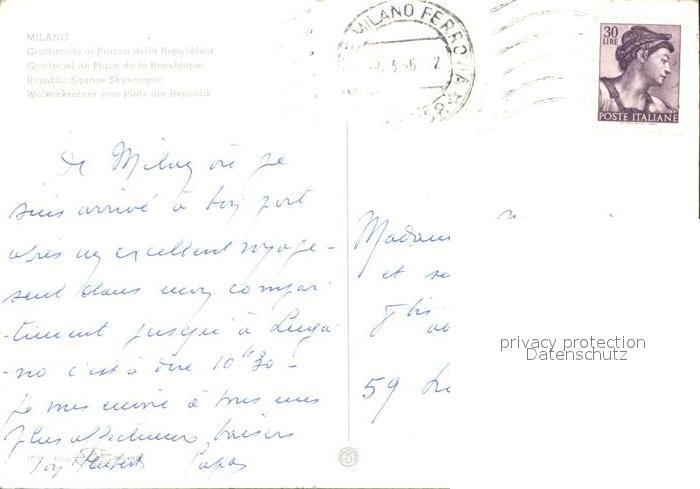 MILANO
Grattacielo di Piazza della Repubblica
Gratteciel de Place de la Republique
Republic Square Skyscraper
Wolkenkratzer vom Platz der Republik
MILANO FERROVIA
30
LIRE
POSTE ITALIANE
De Milan où je
suis arrivé à bon port
après un excellent voyage -
seul dans mon compar-
-timent jusqu'à Luga
-no c'est à dire 10h30 -
Je vous envoie à tous mes
plus affectueux baisers
Papa
Madam
et
8 bis
59
privacy protection
Datenschutz